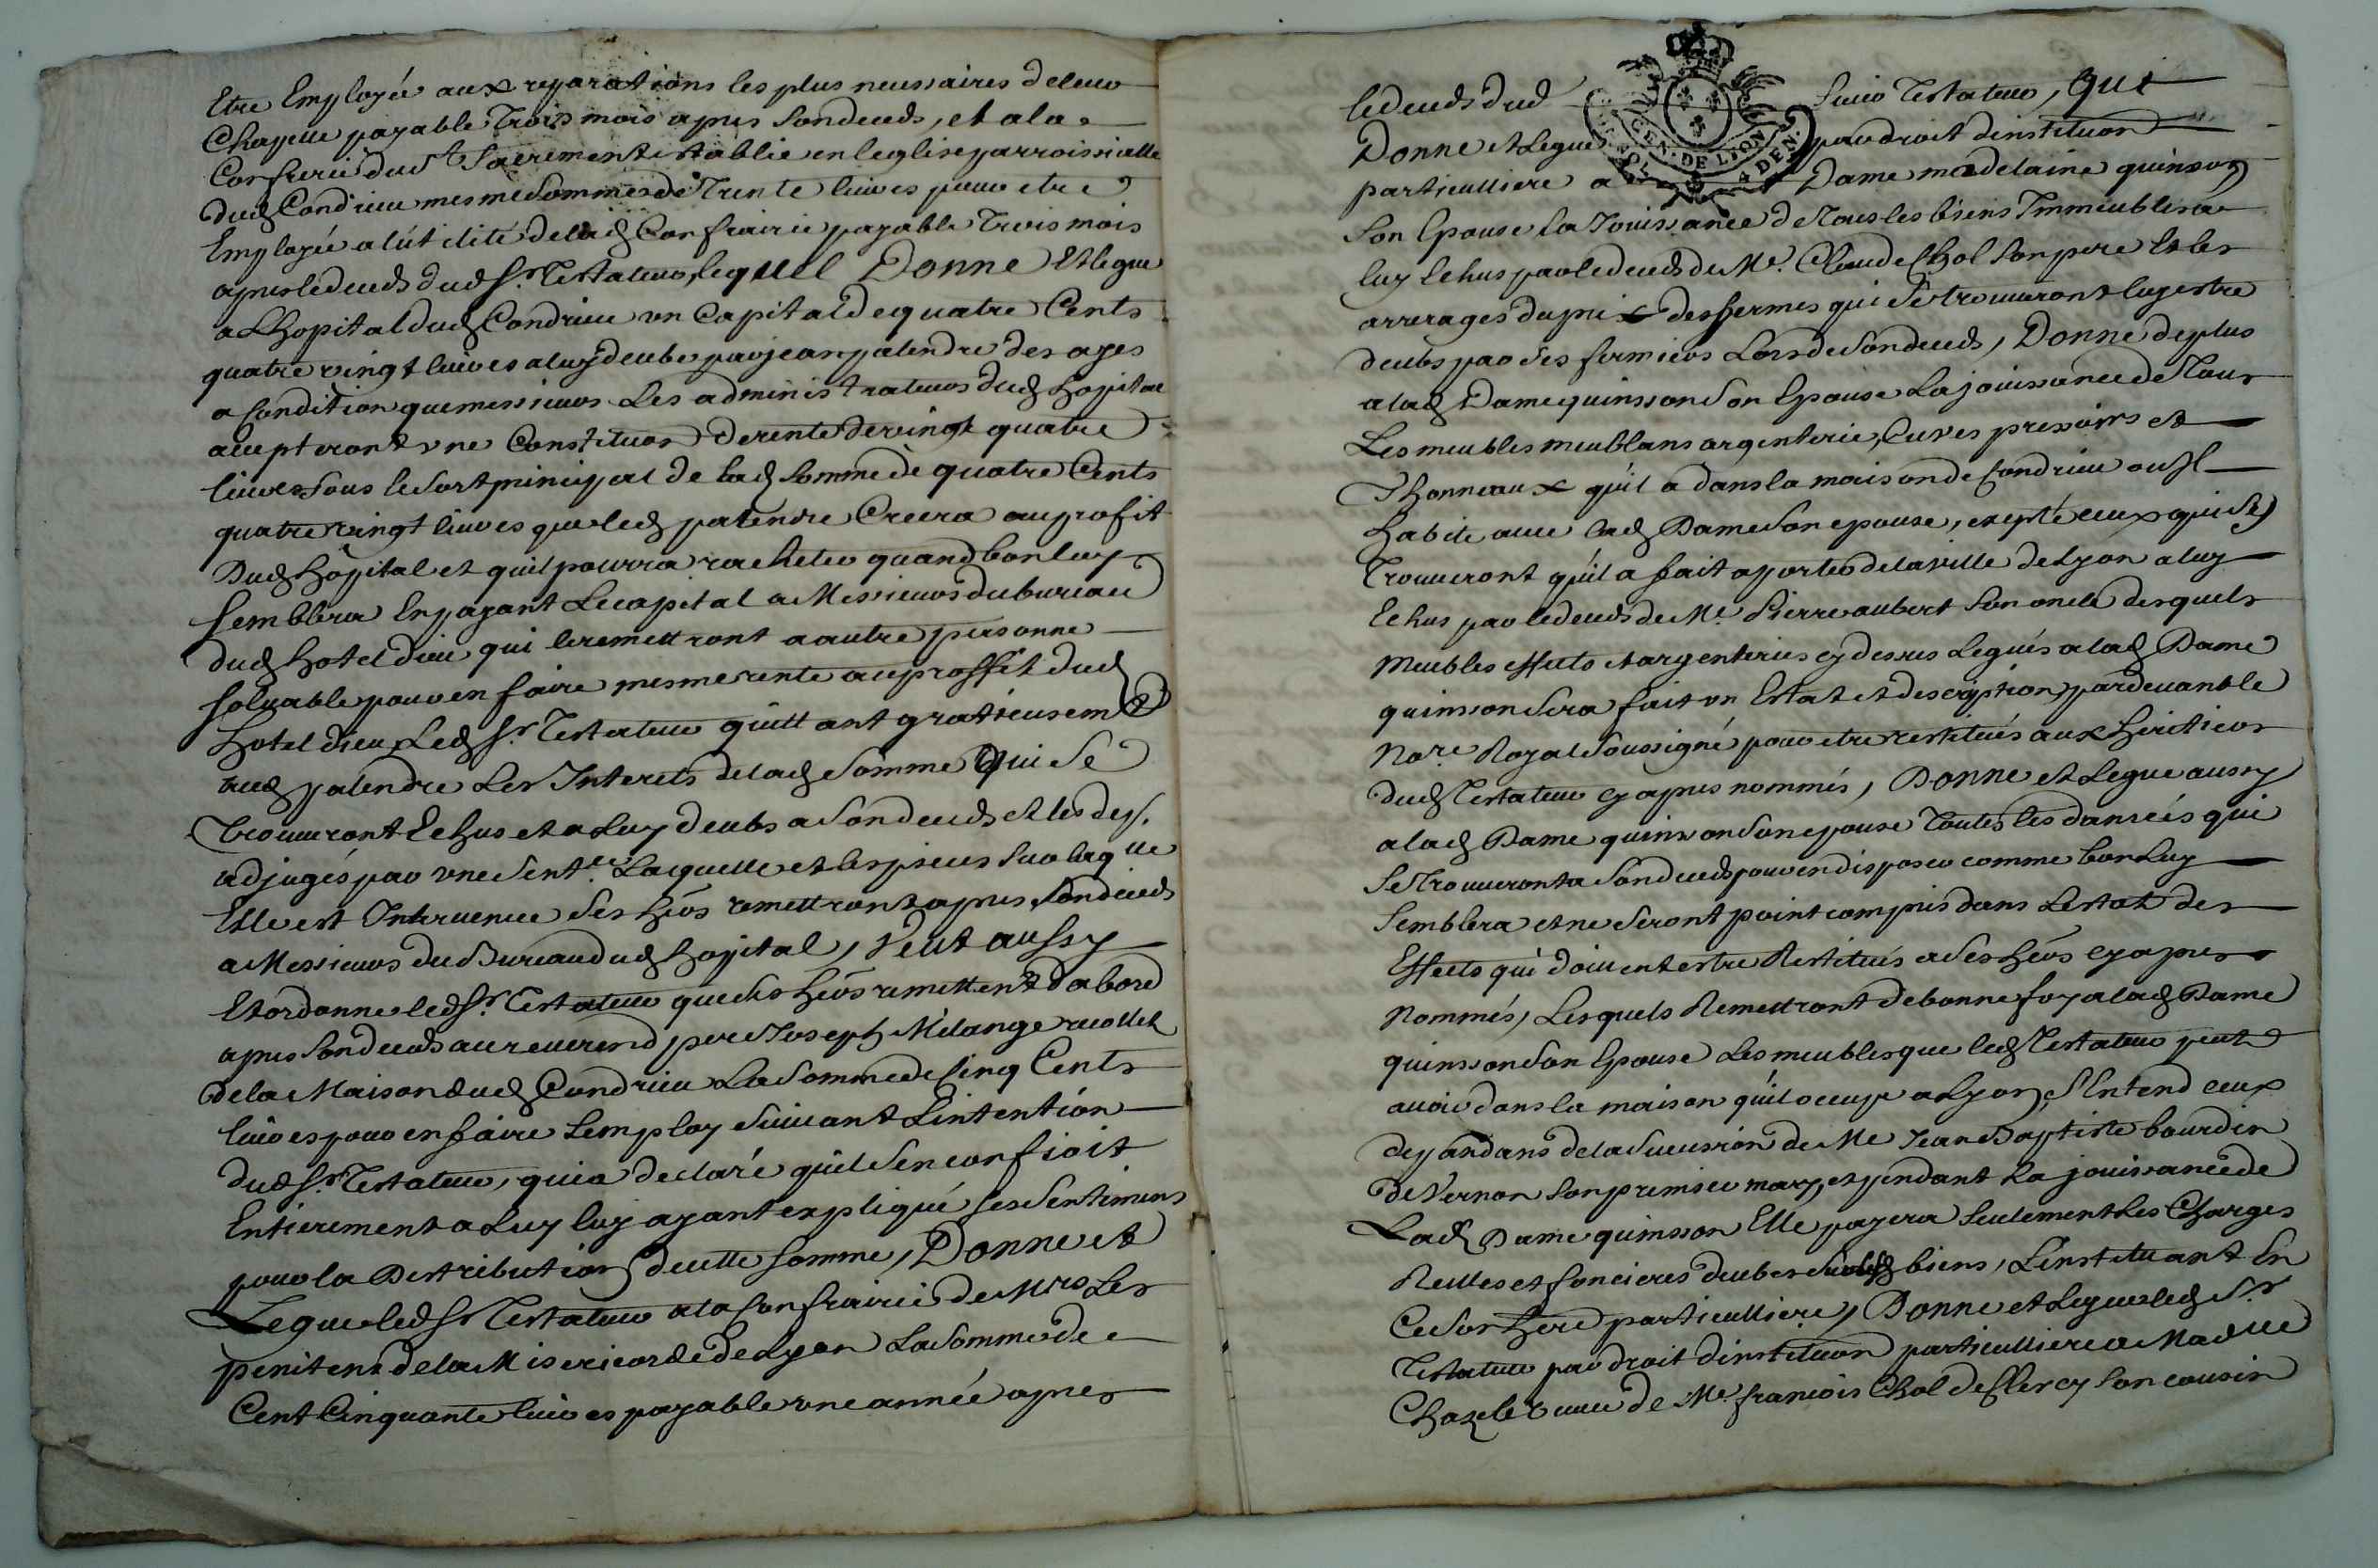 Etre Employée aux reparations les plus necessaires de leur
Chapelle payable Trois mois apres son deceds, et a la
Confrerie du St Sacrement establie en leglise parroissialle
dud Condrieu mesme somme de Trente livres pour etre
Employée a lutilité de lad Confrairie payable Trois mois
apres le deceds dud Sr. Testateur, lequel Donne Et legue
a Lhopital dud Condrieu un Capital de quatre Cents
quatre vingt livres a luy deube par jean palendre des ayes
a Condition que messieurs Les administrateurs dud hopital
accepteront une Constituon de rente de vingt quatre
livres sous le sort principal de lad somme de quatre Cents
quatre vingt livres que led palendre Creera au profit
Dud hôpital et quil pourra racheter quand bon luy
semblera En payant Le capital a Messieurs du bureau
dud hotel dieu qui le remettront a autre personne
solvable pour en faire mesme rente au proffit dud
hotel dieu, Led Sr. Testateur quittant gratieusemt
aud palendre Les Interets de lad somme Qui se
trouveront Echus et a Luy deubs a son deceds et les dep.
adjugés par une sentce. Laquelle et les pieces sur laqlle
Elle est Intervenue ses heors remettront apres son deceds
a Messieurs du Bureau dud hopital, Veut aussy
Et ordonne led Sr. Testateur que ses heors remettent dabord
apres son deceds au reverend pere Joseph Mélange recollet
De la Maison dud Condrieu La somme de Cinq Cents
livres pour en faire Lemploy suivant Lintention
dud Sr. Testateur, qui a declaré quil sen confioit
Entierement a Luy luy ayant expliqué ses sentimens
pour la Distribution de cette somme, Donne et
Legue led Sr Testateur a la Confrairie de Mrs Les
penitens de la Misericorde de Lyon La somme de
Cent Cinquante livres payable une année apres
le deceds dud Sieur Testateur, qui
Donne et Legue par droit dinstituon
particulliere a Dame madelaine quinson
son Epouse la Jouissance de Tous les biens Immeubles a
luy Echus par le deceds de Me. Claude Chol son pere Et les
arrerages du prix des fermes qui se trouveront luy estre
deubs par ses fermiers Lors de son deceds, Donne de plus
a lad Dame quinsson son Epouse La jouissance de Tous
Les meubles meublans argenterie, Cuves pressoirs et
Thonneaux qu'il a dans la maison de Condrieu ou Il
habite avec lad Dame son epouse, excepté ceux qui se
Trouveront qu'il a fait aporter de la ville de Lyon a luy
Echus par le deceds de Me. Pierre aubert son oncle desquels
Meubles effects et argenteries cy dessus Legués a lad Dame
quinson sera fait un Estat et description pardevant le
Nore. Royal soussigné pour etre restitués aux heritiers
dud Testateur cy apres nommés, Donne et Legue aussy
a lad Dame quinsson son epouse Toutes les danrées qui
se Trouveront a son deceds pour en disposer comme bon Luy
semblera et ne seront point compris dans Lestat des
Effects qui doivent estre Restitués a ses heors cy apres
Nommés, Lesquels Remettront de bonne foy a lad Dame
quinsson son Epouse Les meubles que led Testateur peut
avoir dans la maison qu'il occupe a Lyon, s'Entend ceux
depandans de la succession de Me Jean Baptiste bourdin
De Vernon son premier mary, et pendant La jouissance de
Lad Dame quinsson Elle payera seulement Les Charges
Reelles et foncieres deubes sur lesd biens, Linstituant En
Ce son here particulliere, Donne et Legue led Sr
Testateur par droit dinstituon particulliere a Madlle
Chazelet veuve de Me. francois Chol de Clercy son cousin
GEN. DE LION
4 DEN.